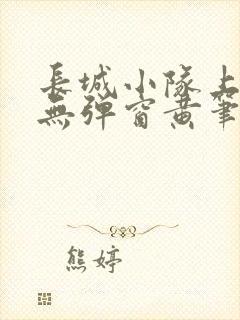 長城小隊上
無彈窗黃筆
熊婷